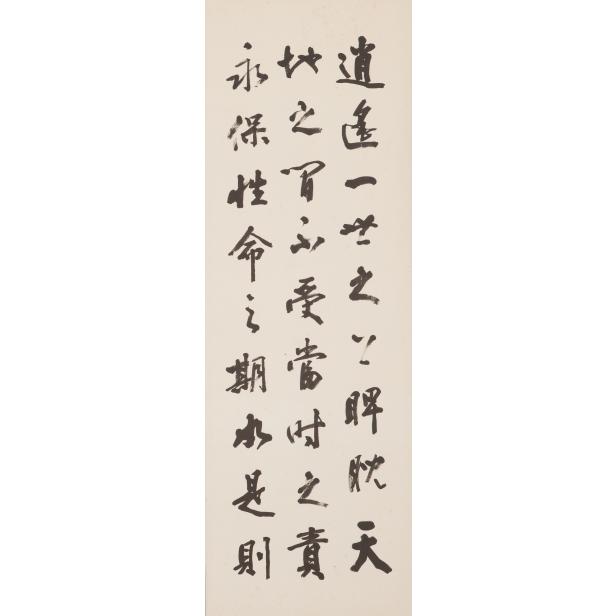 逍遙一世之上睥睨天
地之間不受當時之責
永保性命之期如是則